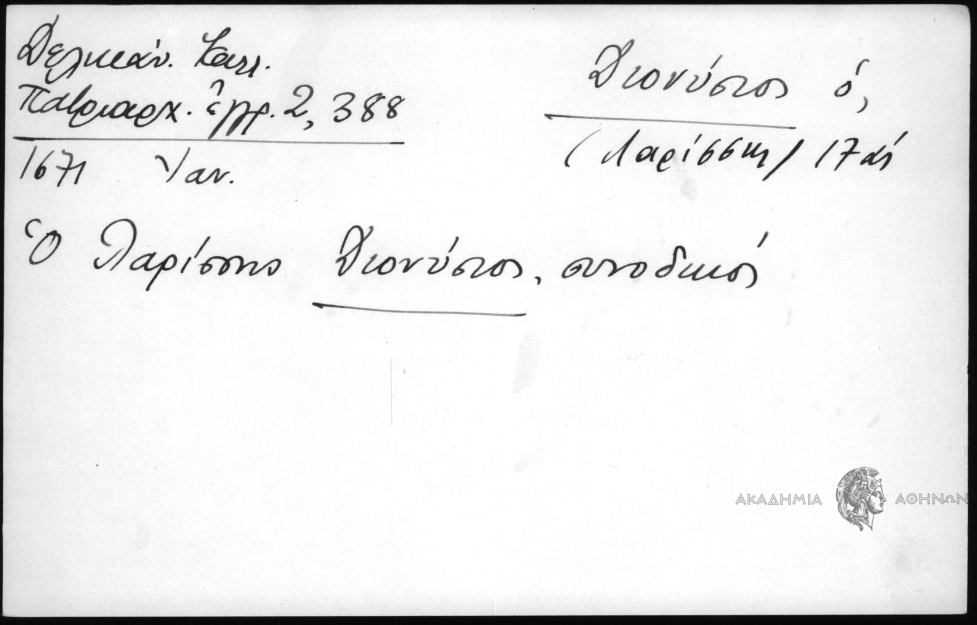 Δελικάν. Κατ.
Πατριαρχ. ἐγγρ. 2, 388
Διονύσιος ὁ,
(Λαρίσσης) 17 αἰ
1671 Ἰαν.
Ὁ Λαρίσσης Διονύσιος, συνοδικός
ΑΚΑΔΗΜΙΑ ΑΘΗΝΩΝ